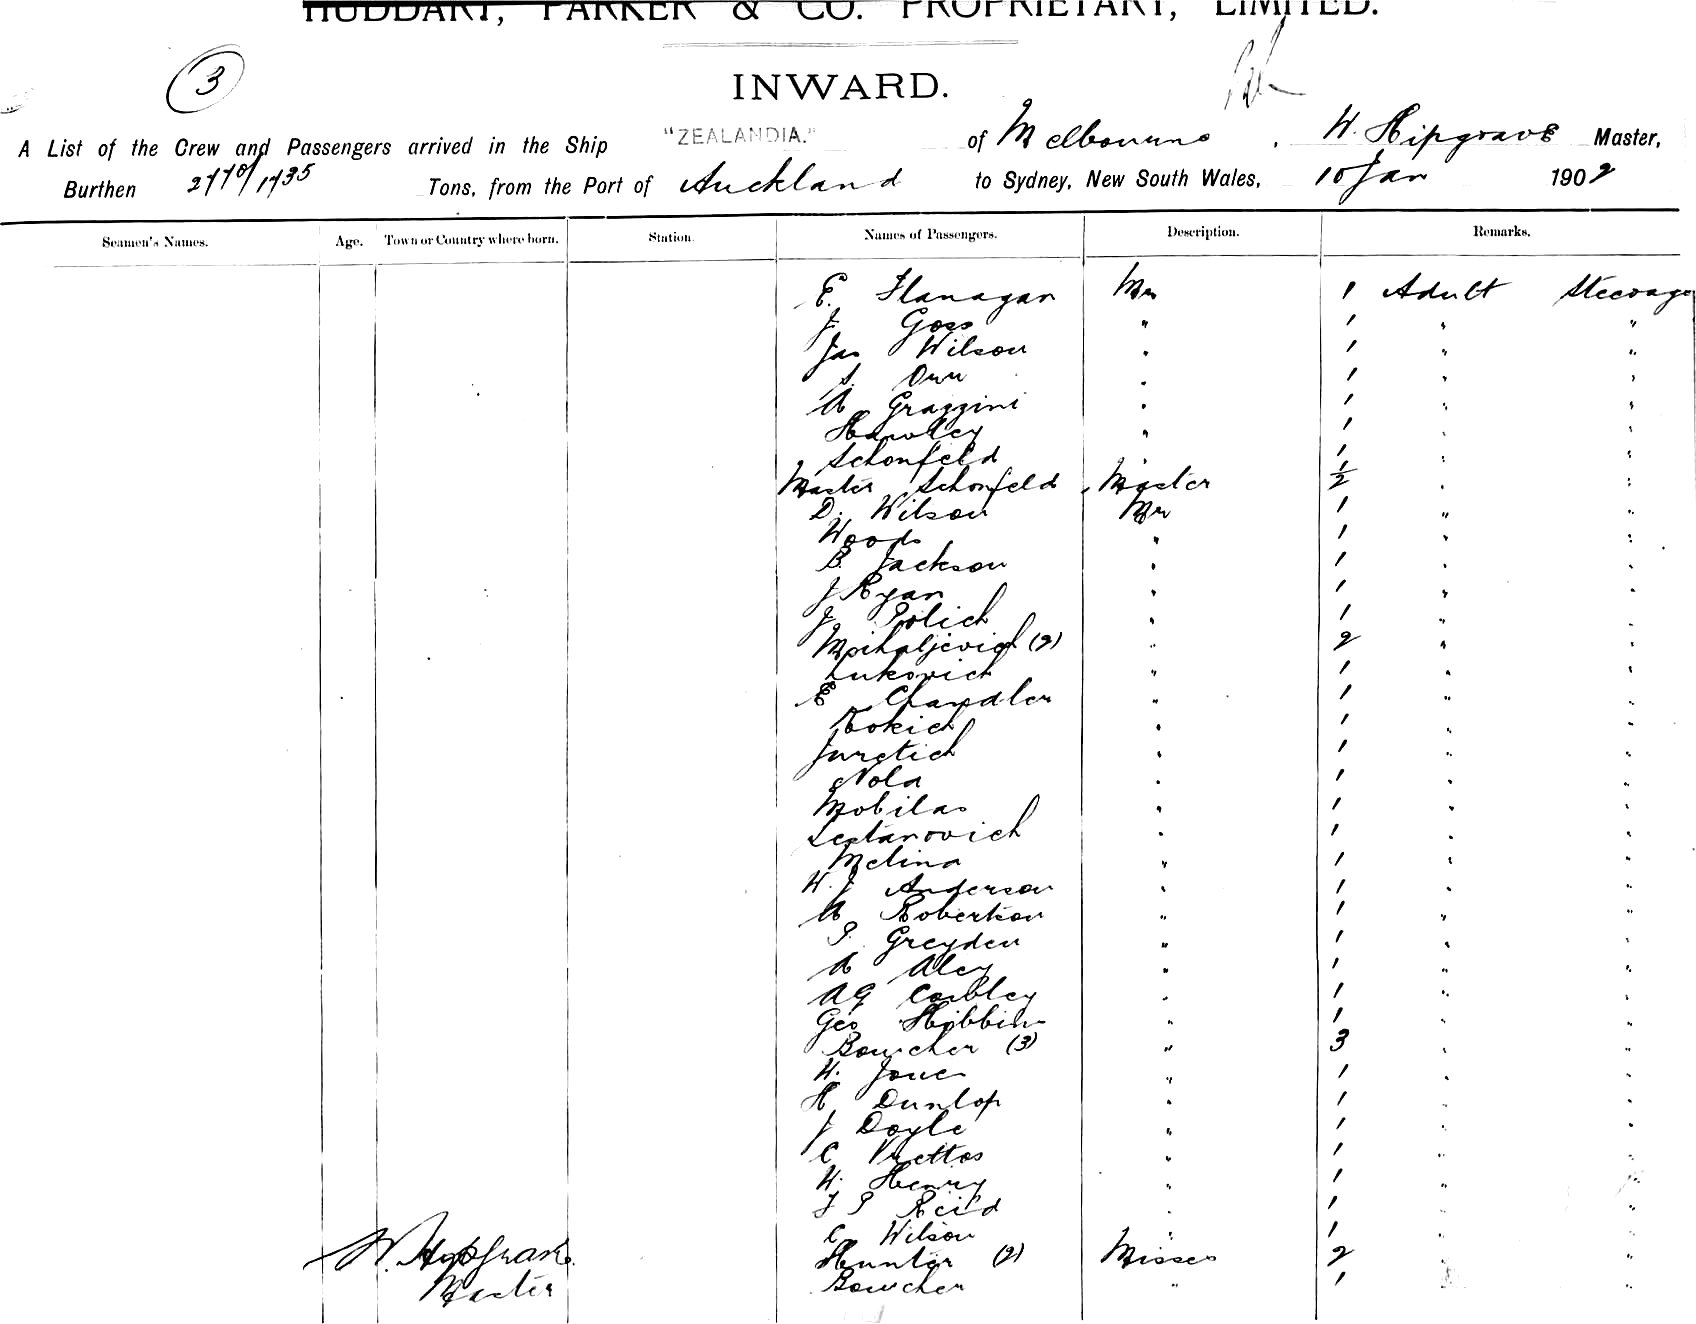 HUDDART, PARKER & CO. PROPRIETARY, LIMITED.
3
INWARD.
A List of the Crew and Passengers arrived in the Ship "ZEALANDIA." of Melbourne, W. Hipgrave Master,
Burthen 2770/1735 Tons, from the Port of Auckland to Sydney, New South Wales, 10 Jan 1902
Seamen's Names. Age. Town or Country where born. Station. Names of Passengers. Description. Remarks.
E. Flanagan Mr 1 Adult Steerage
J Goss " 1 " "
Jas Wilson " 1 " "
S. Orr " 1 " "
A Grazzini " 1 " "
Hawley " 1 " "
Schonfeld " 1 " "
Master Schonfeld Master 1/2 " "
D. Wilson Mr 1 " "
Woods " 1 " "
B. Jackson " 1 " "
J Ryan " 1 " "
J Polich " 1 " "
Mihaljevich (2) " 2 " "
Lukovich " 1 " "
E Chandler " 1 " "
Rokich " 1 " "
Juretich " 1 " "
Nola " 1 " "
Mobilas " 1 " "
Lestanovich " 1 " "
Melina " 1 " "
W. J Anderson " 1 " "
A Robertson " 1 " "
P. Greyden " 1 " "
A Aley " 1 " "
A G Cowley " 1 " "
Geo Hibbins " 1 " "
Bowcher (3) " 3 " "
W. Jones " 1 " "
H Dunlop " 1 " "
J Doyle " 1 " "
C Vrettos " 1 " "
W. Henry " 1 " "
F P Reid " 1 " "
C. Wilson " 1 " "
W. Hipgrave Hunter (2) Misses 2 " "
Master Bowcher " 1 " "